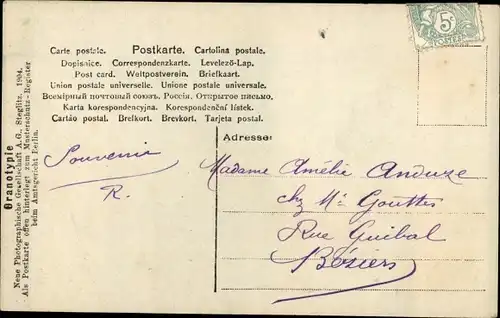 Carte postale. Postkarte. Cartolina postale.
Dopisnice. Correspondenzkarte. Levelező-Lap.
Post card. Weltpostverein. Briefkaart.
Union postale universelle. Unione postale universale.
Всемірный почтовый союзъ. Россія. Открытое письмо.
Karta korespondencyjna. Korespondenční lístek.
Cartão postal. Brelkort. Brevkort. Tarjeta postal.
5c
POSTES
Granotypie
Neue Photographische Gesellschaft A.G., Steglitz. 1904.
Als Postkarte offen hinterlegt zum Musterschutz-Register
beim Amtsgericht Berlin.
Souvenir
R.
Adresse:
Madame Amélie Anduze
chz Mr Gouttes
Rue Guibal
Béziers